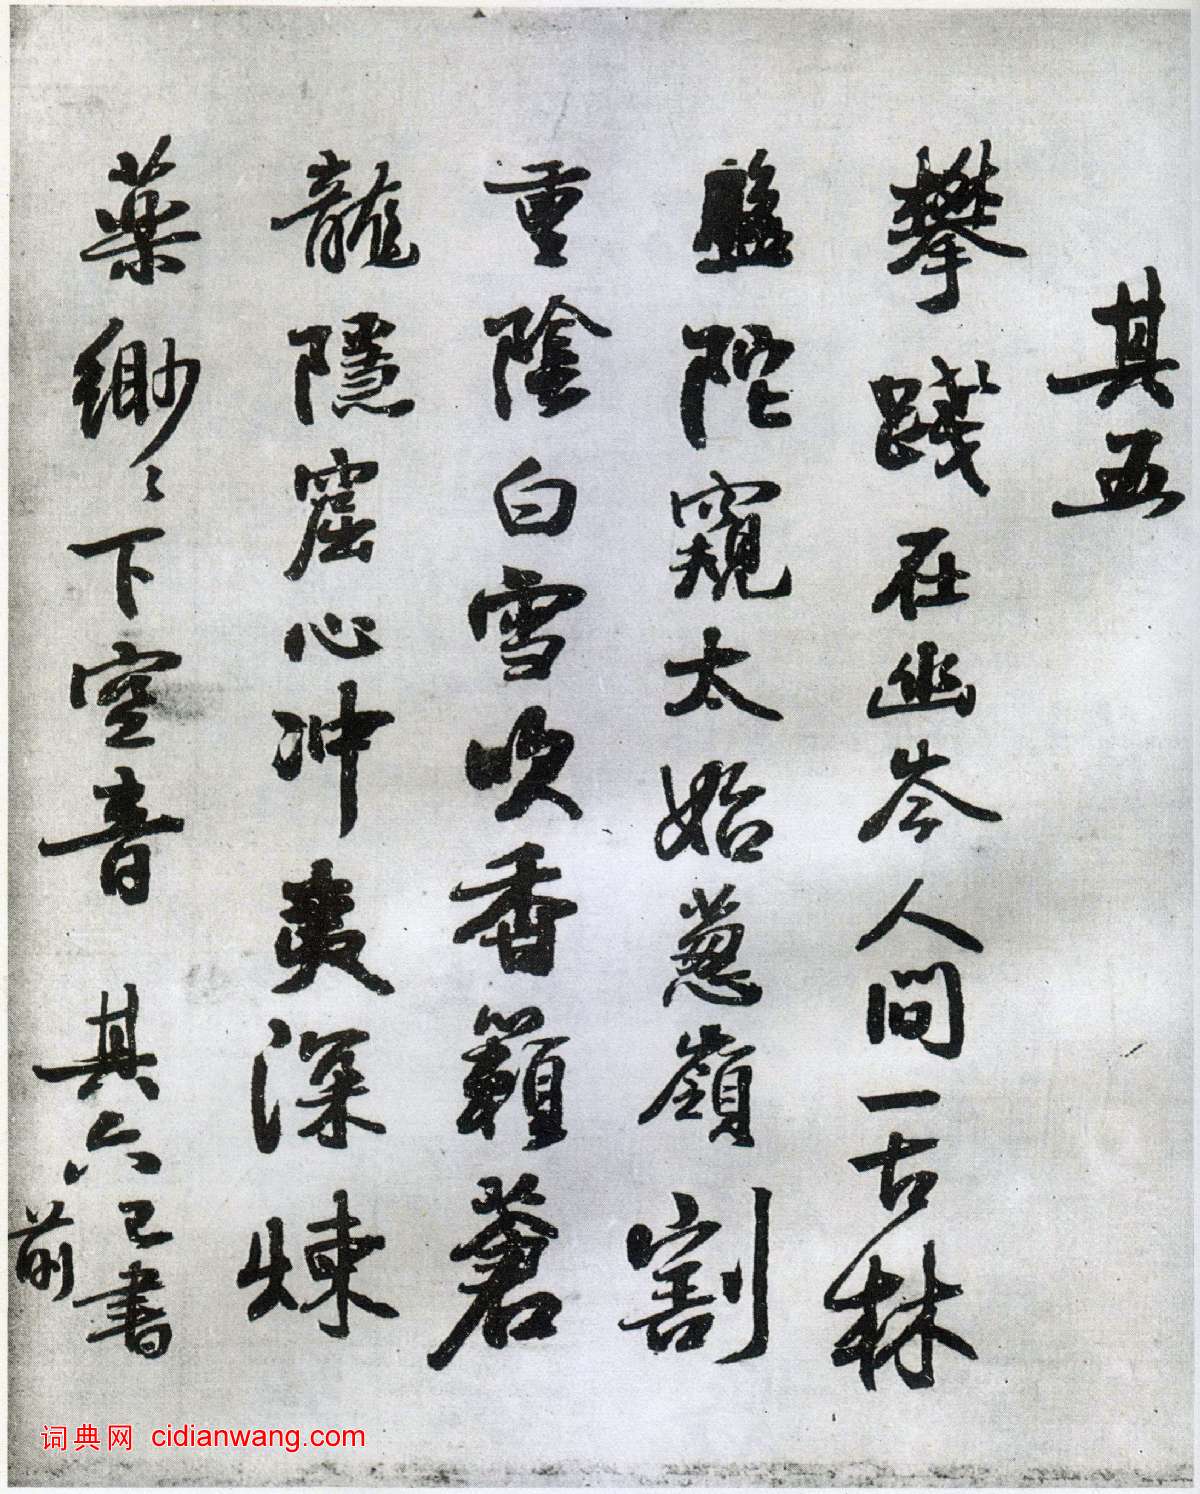 其五
攀踐在幽岑人間一古林
盤陀窺太始蔥嶺割
重陰白雪吹香籟蒼
龍隱窟心冲夷深煉
藥緲〻下空音 其六已書
前
词典网 cidianwang.com